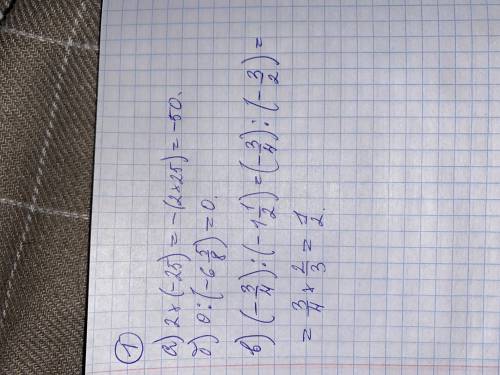 1
а) 2×(-25) = -(2×25) = -50.
б) 0:(-6 5/8) = 0.
в) (-3/4):(-1 1/2) = (-3/4):(-3/2) =
= 3/4 × 2/3 = 1/2.